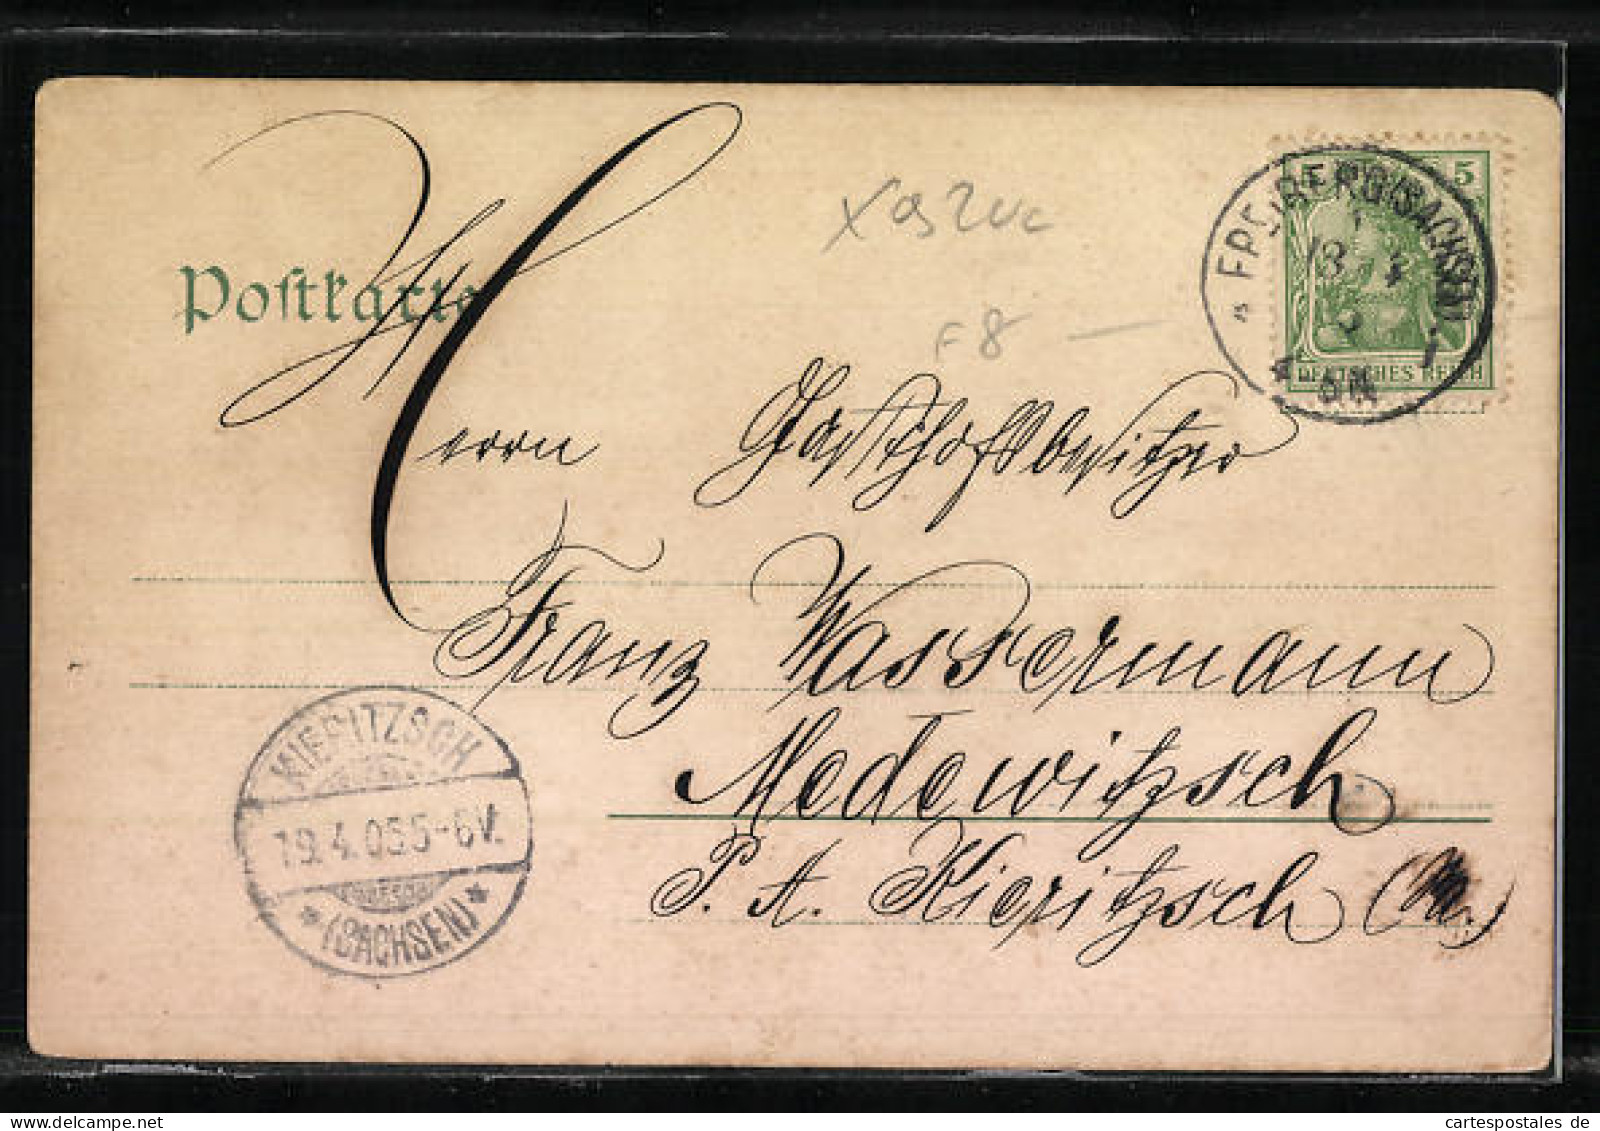 Postkarte
5 5
DEUTSCHES REICH
FREIBERG (SACHSEN)
18 4
F8 —
Herrn Gasthofsbesitzer
Franz Wassermann
Medewitzsch
P. A. Kieritzsch
KIERITZSCH
19.4.05 5-6V.
* (SACHSEN) *
cartespostales.de